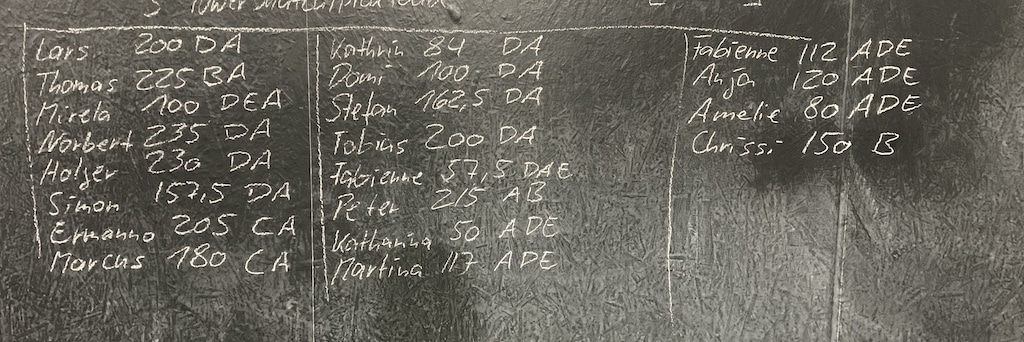 5
Lars 200 DA
Thomas 225 BA
Mirela 100 DEA
Norbert 235 DA
Holger 230 DA
Simon 157,5 DA
Ermanno 205 CA
Marcus 180 CA
Kathrin 84 DA
Domi 100 DA
Stefan 162,5 DA
Tobias 200 DA
Fabienne 57,5 DAE
Peter 215 AB
Katharina 50 ADE
Martina 117 ADE
Fabienne 112 ADE
Anja 120 ADE
Amelie 80 ADE
Chrissi 150 B